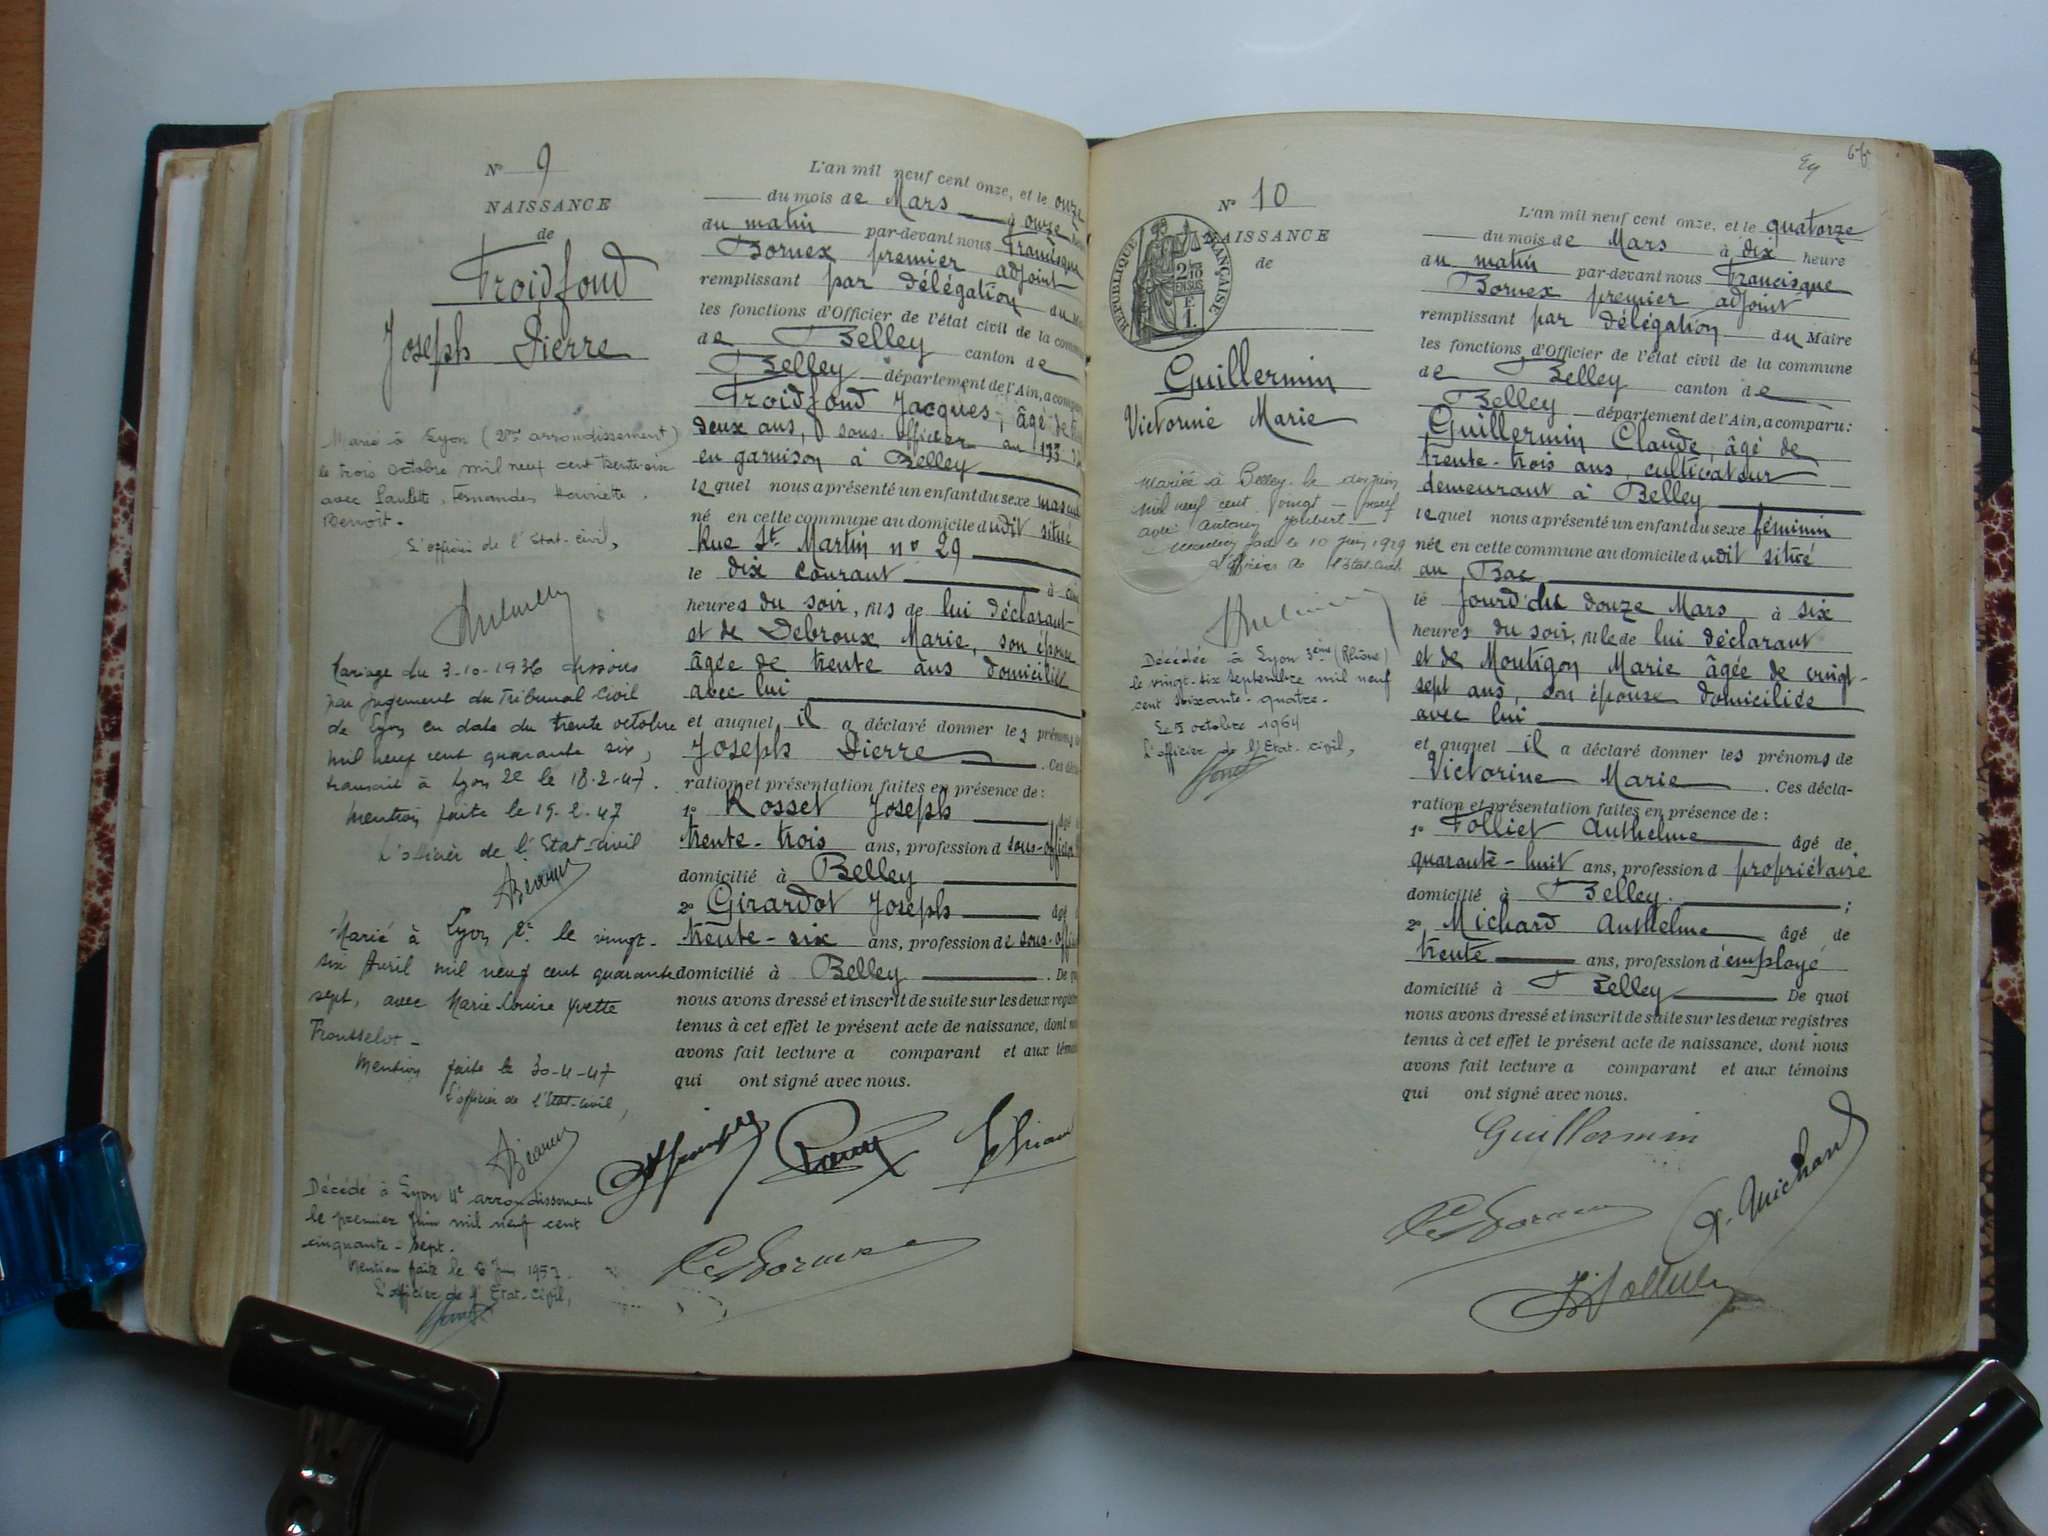 N° 9
NAISSANCE
de
Froidfond
Joseph Pierre
Marié à Lyon (2me arrondissement)
le trois octobre mil neuf cent trente-six
avec Paulette, Fernandes Henriette,
Benoit.-
L'officier de l'Etat-Civil,
Mariage du 3-10-1936 dissous
par jugement du Tribunal Civil
de Lyon en date du trente octobre
mil neuf cent quarante six,
transcrit à Lyon 2e le 18.2.47.
Mention faite le 19.2.47
L'officier de l'Etat-civil
Marié à Lyon 2e le vingt-
six Avril mil neuf cent quarante
sept, avec Marie Louise Yvette
Trousselot-
Mention faite le 30-4-47
L'officier de l'Etat-civil,
Décédé à Lyon 4e arrondissement
le premier Juin mil neuf cent
cinquante-sept.
Mention faite le 6 Juin 1957.
L'officier de l'Etat-Civil,
L'an mil neuf cent onze, et le onze
du mois de Mars à onze
du matin par-devant nous Francisque
Bornex premier adjoint
remplissant par délégation du
les fonctions d'Officier de l'état civil de la
de Belley canton de
Belley département de l'Ain, a
Froidfond Jacques, âgé de
deux ans, sous officier au 133
en garnison à Belley
lequel nous a présenté un enfant du sexe
né en cette commune au domicile dudit situé
Rue St. Martin no 29
le dix courant à
heures du soir, fils de lui déclarant
et de Debroux Marie, son épouse
âgée de trente ans domiciliée
avec lui
et auquel il a déclaré donner les prénoms
Joseph Pierre . Ces
ration et présentation faites en présence de :
1° Rosset Joseph âgé
trente-trois ans, profession d sous-officier
domicilié à Belley
2° Girardot Joseph âgé
trente-six ans, profession de sous-
domicilié à Belley . De
nous avons dressé et inscrit de suite sur les deux
tenus à cet effet le présent acte de naissance, dont
avons fait lecture a comparant et aux
qui ont signé avec nous.
N° 10
NAISSANCE
de
REPUBLIQUE FRANÇAISE
2/10
EN SUS
F.
1.
Guillermin
Victorine Marie
Mariée à Belley le dix juin
mil neuf cent vingt-neuf
avec Antonin Joubert
le 10 juin 1929
L'officier de l'Etat-Civil
Décédée à Lyon 3ème (Rhône)
le vingt-six septembre mil neuf
cent soixante-quatre.
Le 5 octobre 1964
L'officier de l'Etat-civil,
L'an mil neuf cent onze, et le quatorze
du mois de Mars à dix heure
du matin par-devant nous Francisque
Bornex premier adjoint
remplissant par délégation du Maire
les fonctions d'Officier de l'état civil de la commune
de Belley canton de
Belley département de l'Ain, a comparu :
Guillermin Claude, âgé de
trente-trois ans, cultivateur
demeurant à Belley
lequel nous a présenté un enfant du sexe féminin
née en cette commune au domicile dudit situé
au Bac
le jourd'hui douze Mars à six
heures du soir, fille de lui déclarant
et de Montigon Marie âgée de vingt-
sept ans, son épouse domiciliée
avec lui
et auquel il a déclaré donner les prénoms de
Victorine Marie . Ces décla-
ration et présentation faites en présence de :
1° Folliet Anthelme âgé de
quarante-huit ans, profession d propriétaire
domicilié à Belley ;
2° Michard Anthelme âgé de
trente ans, profession d'employé
domicilié à Belley De quoi
nous avons dressé et inscrit de suite sur les deux registres
tenus à cet effet le présent acte de naissance, dont nous
avons fait lecture a comparant et aux témoins
qui ont signé avec nous.
Guillermin
A. Michard